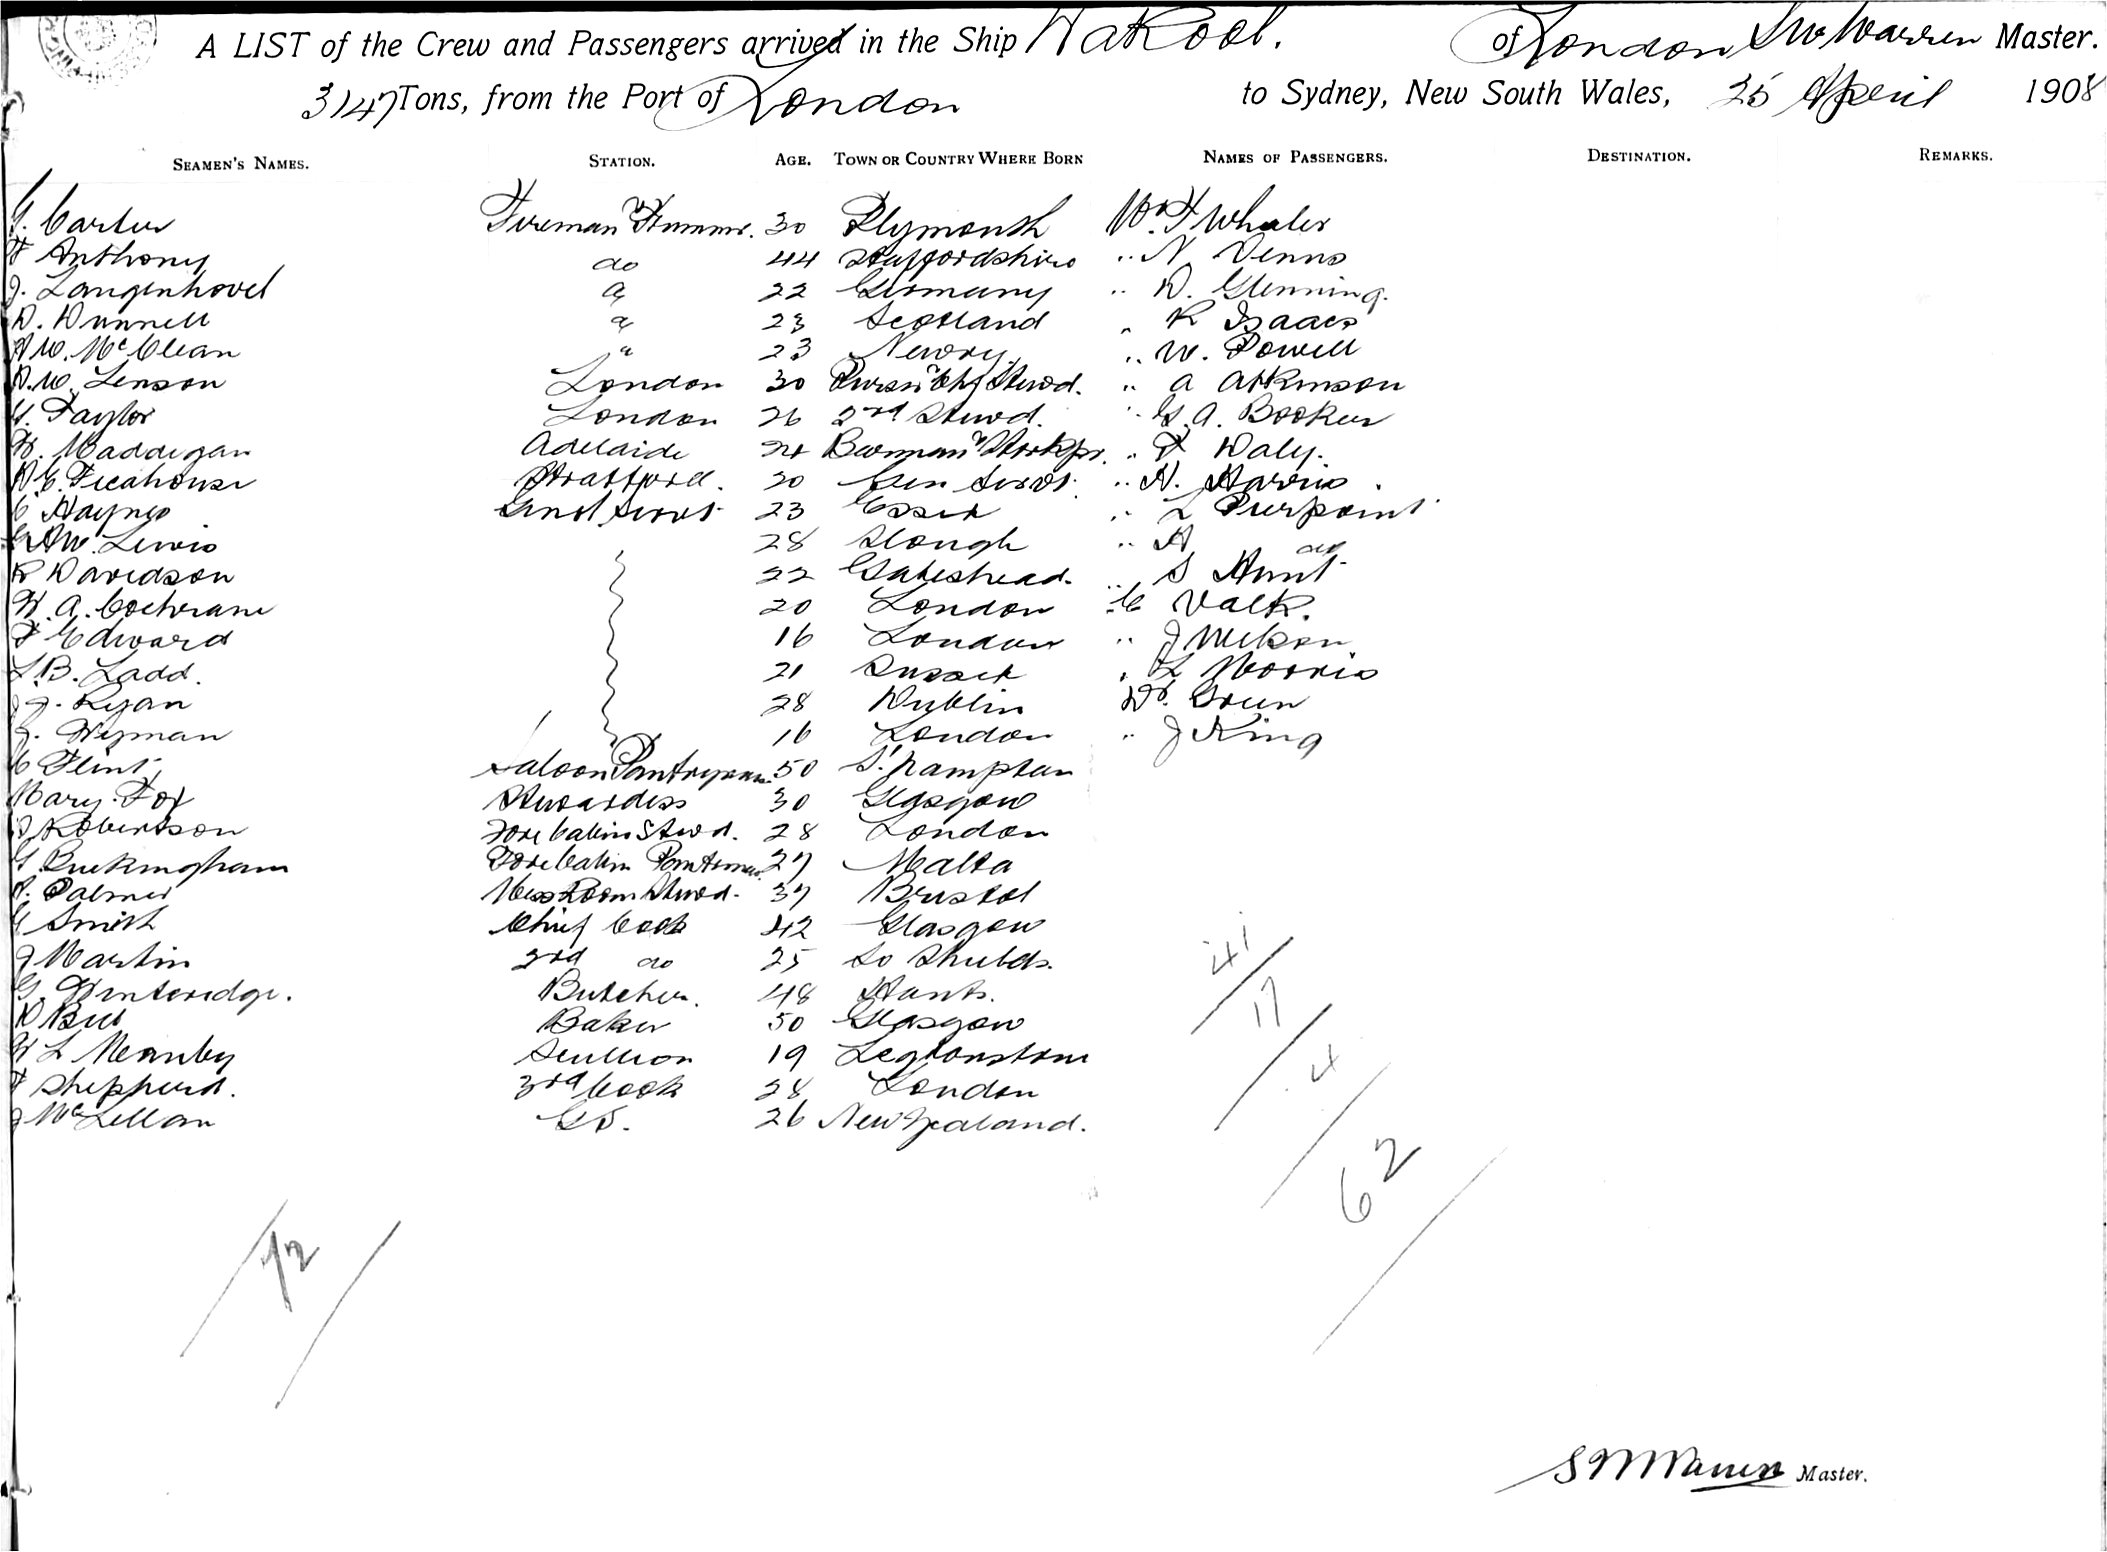 A LIST of the Crew and Passengers arrived in the Ship Wakool. of London S W Warren Master.
3147 Tons, from the Port of London to Sydney, New South Wales, 25 April 1908
SEAMEN'S NAMES. STATION. AGE. TOWN OR COUNTRY WHERE BORN NAMES OF PASSENGERS. DESTINATION. REMARKS.
G. Carter Fireman & Trimmr. 30 Plymouth Mr F Whaler
F Anthony do 44 Staffordshire " N Venns
J. Langenhovel " 22 Germany " D. Glenning.
D. Dunnell " 23 Scotland " R Isaacs
A W. McClean " 23 Newry. " W. Powell
D.W. Lenson London 30 Purser & Chf Stwd. " A Atkinson
G. Taylor London 26 2nd Stwd. " G. A. Booker
W. Maddigan Adelaide 24 Barman & Storkpr. " F Daly.
Stratford. 20 Gen Servt. " H. Harris.
C Haynes Genl Servt 23 Essex " L Pierpoint
A W. Lewis 28 Slough " A do
R Davidson 22 Gateshead. " S Hunt
W. A. Cochrane 20 London " C Valk.
F Edward 16 London " J Wilson
L.B. Ladd. 21 Sussex " L Morris
J J. Ryan 28 Dublin Dr. Green
J. Wyman 16 London " J King
C Flint, Saloon Pantryman 50 S'hampton
Mary Fox Stewardess 30 Glasgow
J Robertson Fore Cabin Stwd. 28 London
G Buckingham Fore Cabin Pantrman. 27 Malta
P. Palmer Mess Room Stwd. 37 Bristol
G Smith Chief Cook 42 Glasgow
J Martin 2nd do 25 So Shields.
G. Winteridge. Butcher. 48 Hants.
D Bell Baker 50 Glasgow
W L Manby Scullion 19 Leytonstone
F Shepherd. 3rd Cook 28 London
J McLellan G S. 26 New Zealand.
41
17
4
62
92
S W Warren Master.